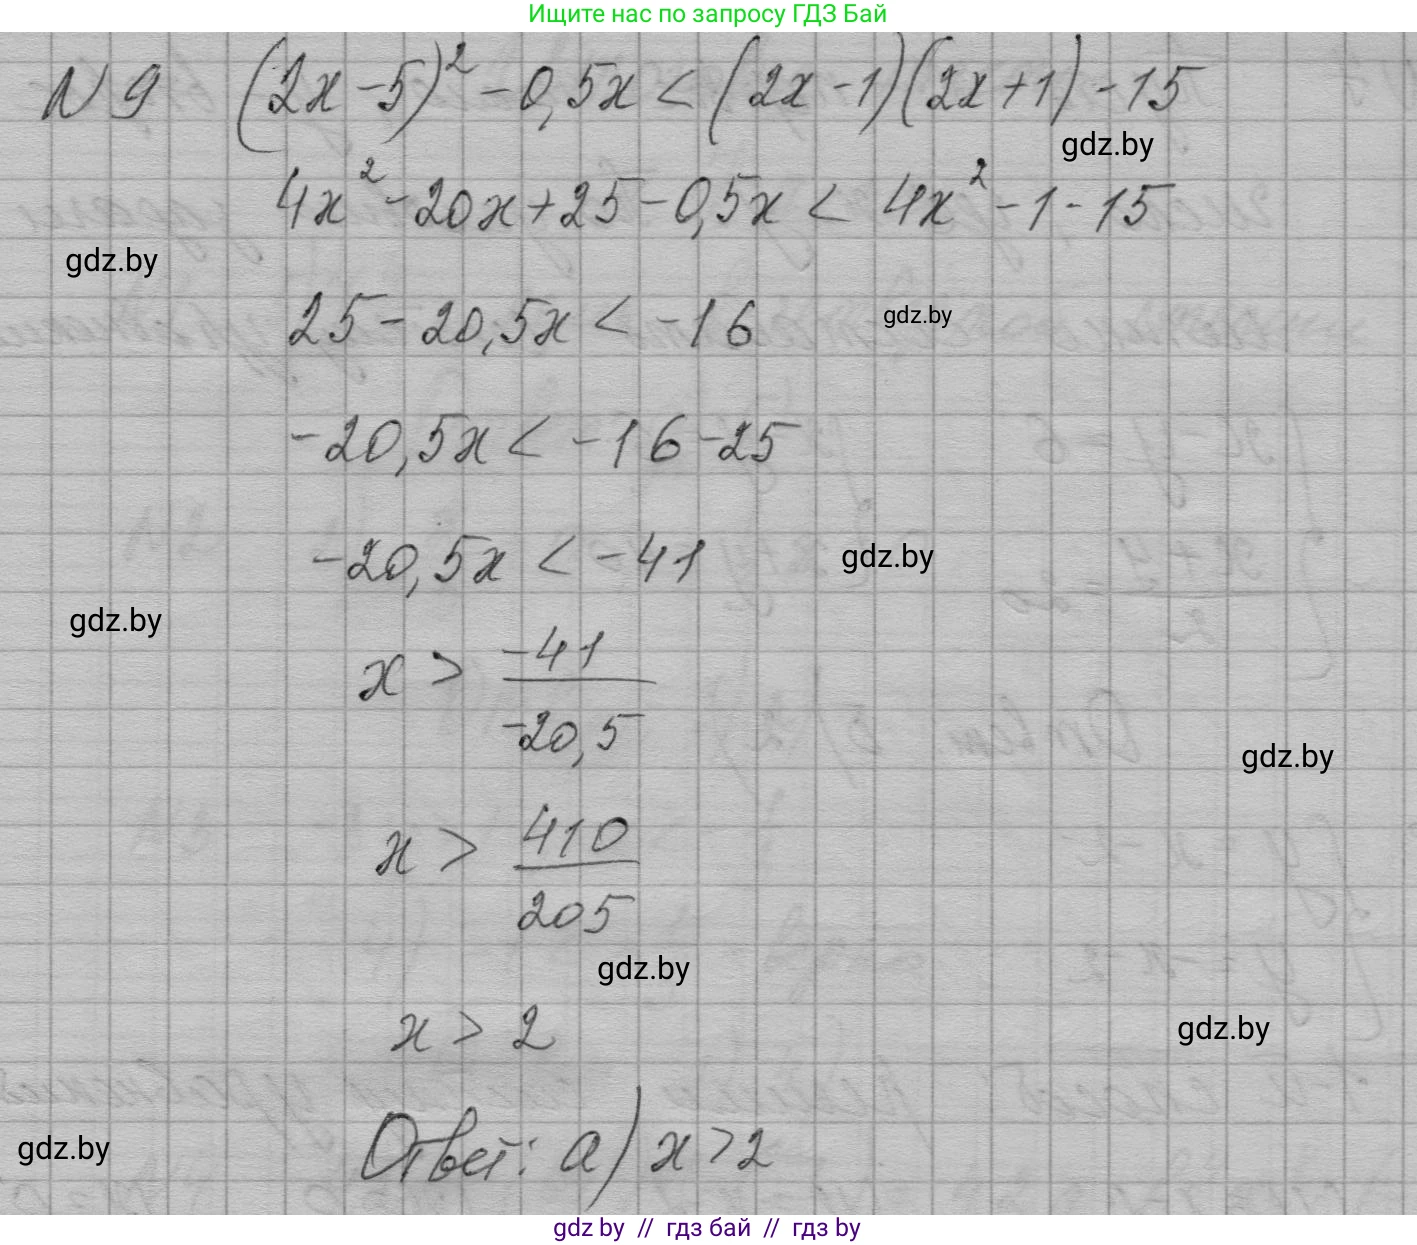 Ищите нас по запросу ГДЗ Бай
N 9 (2x-5)² - 0,5x < (2x-1)(2x+1) - 15
gdz.by
4x² - 20x + 25 - 0,5x < 4x² - 1 - 15
gdz.by
25 - 20,5x < -16
gdz.by
-20,5x < -16 - 25
-20,5x < -41
gdz.by
gdz.by
x > -41 / -20,5
gdz.by
x > 410 / 205
gdz.by
x > 2
gdz.by
Ответ: а) x > 2
gdz.by
gdz by // гдз бай // гдз by